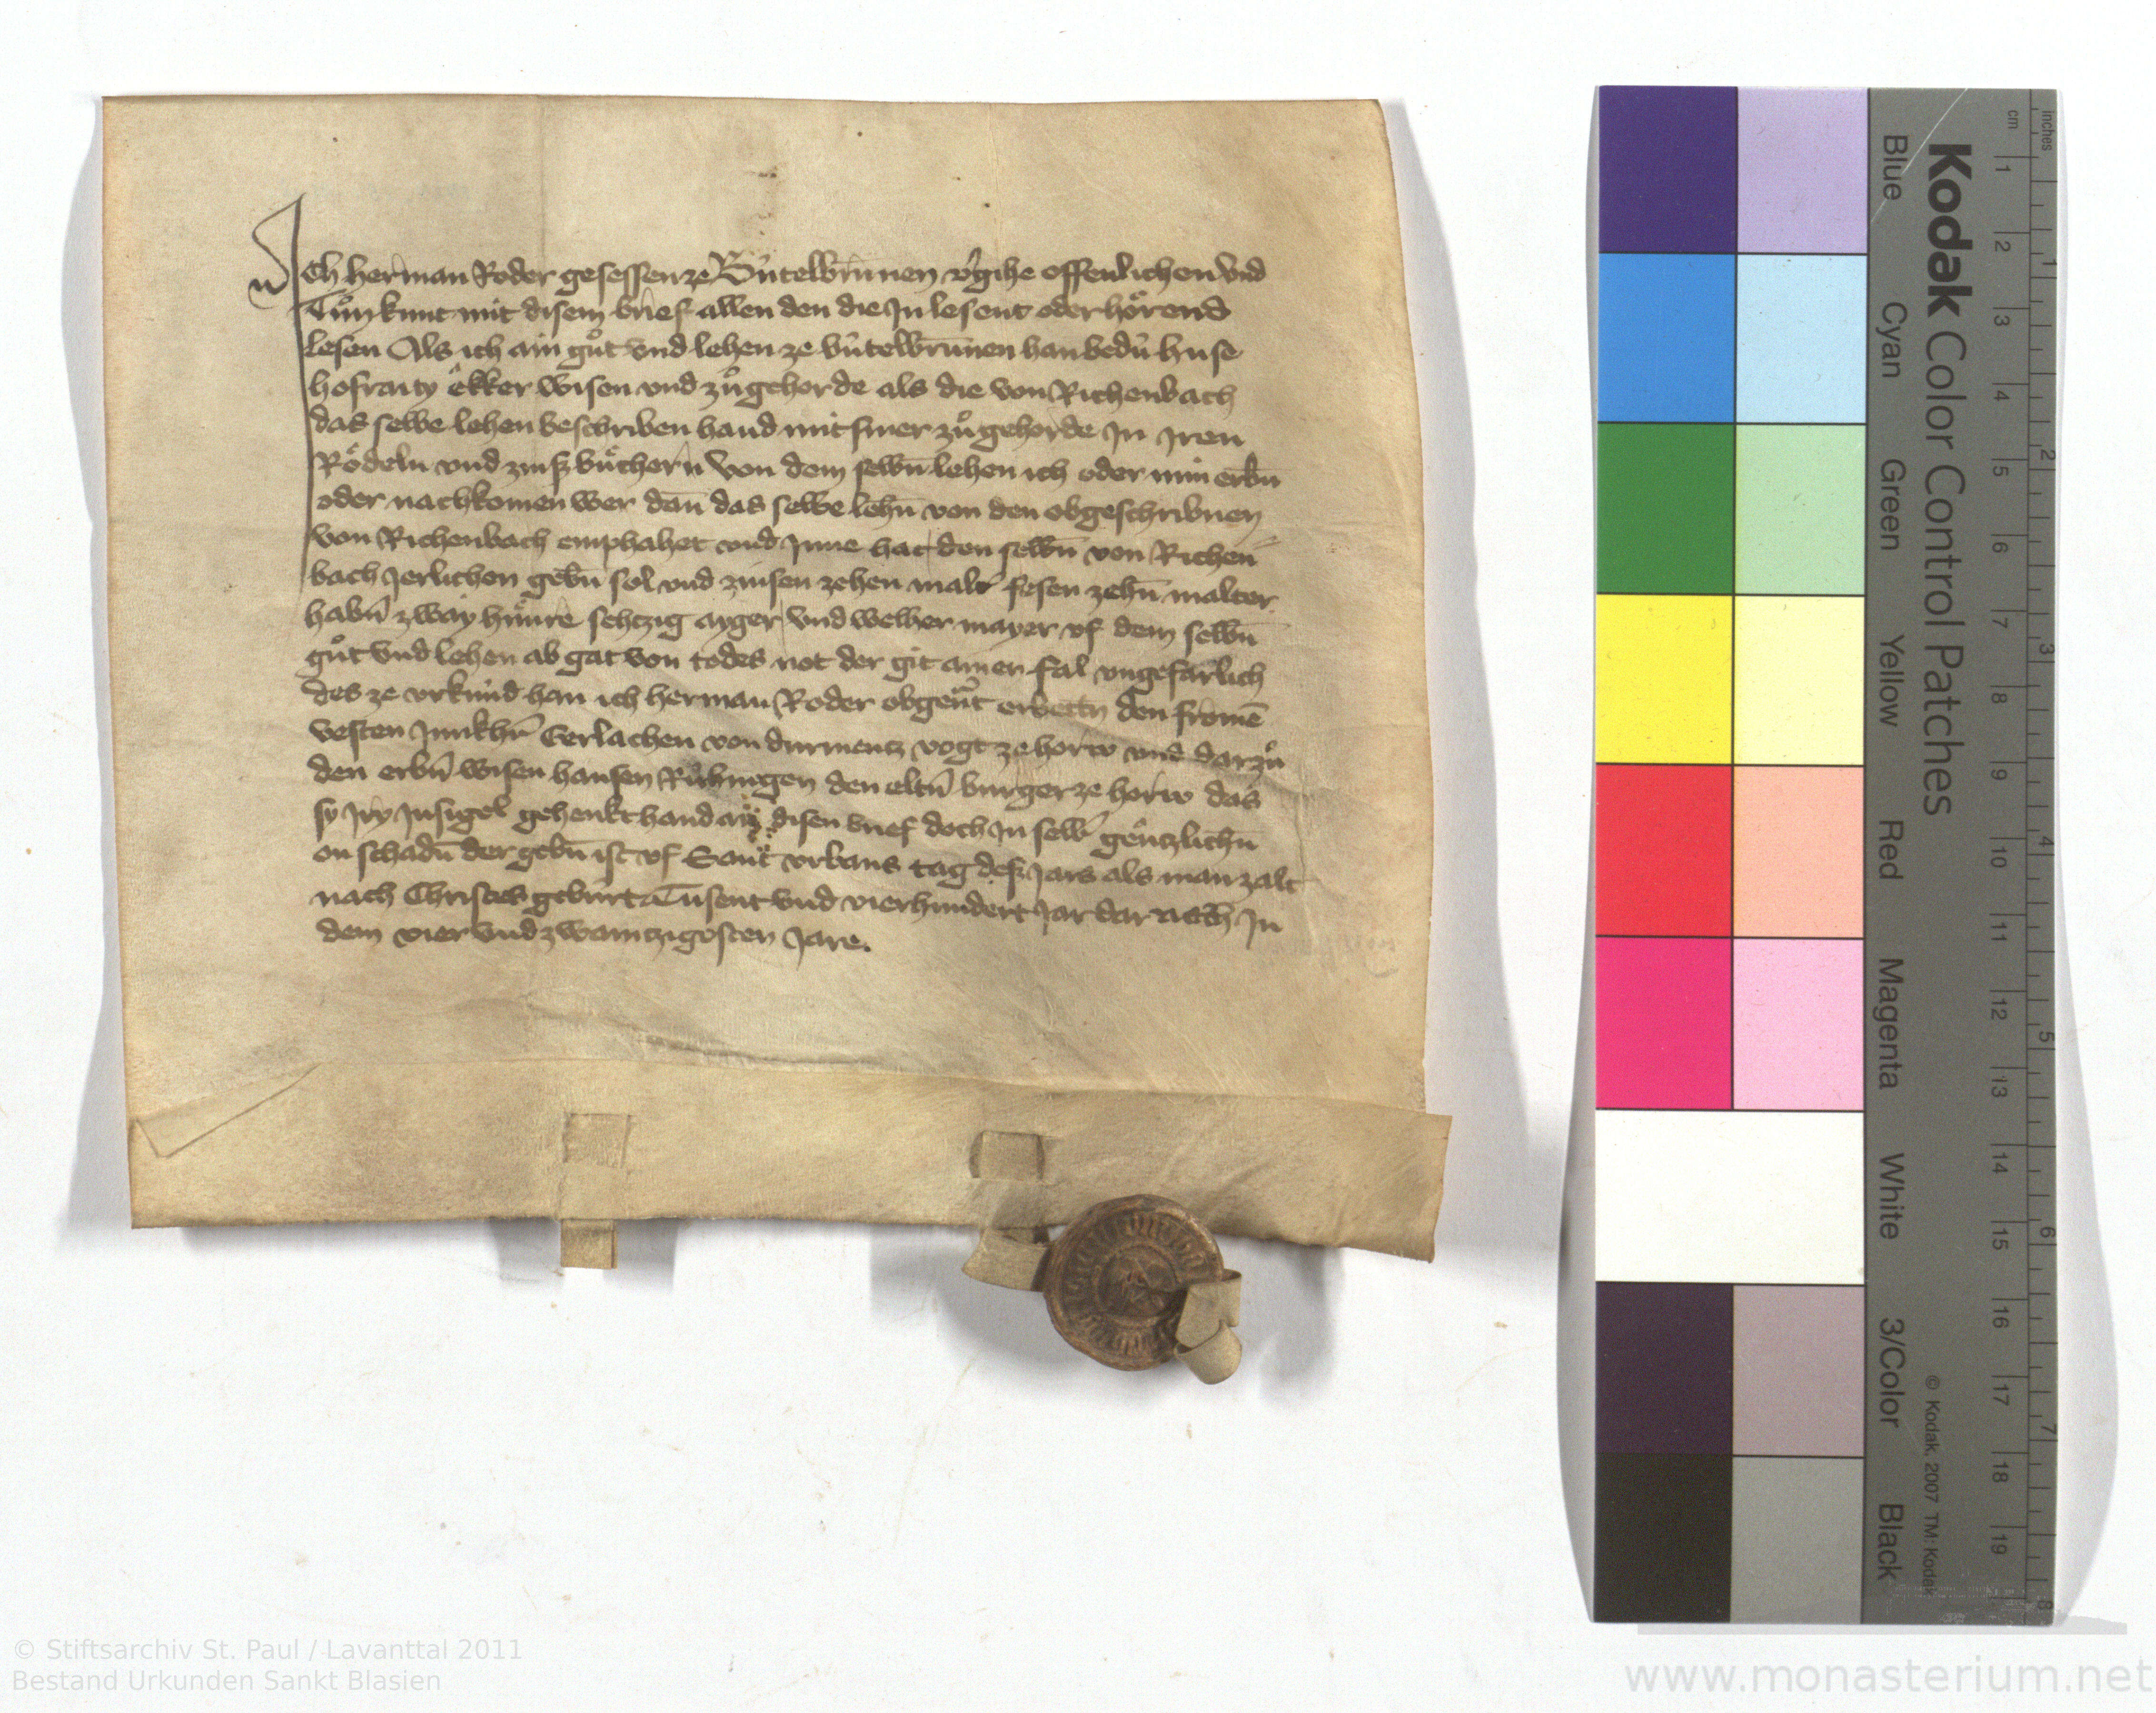 Ich herman Roder gesessen ze Bu̍telbrunnen v̉gihe offenlichen vnd
Tůn kunt mit disem brief allen den die Jn lesent oder hoͤrend
lesen Als ich ain gůt vnd lehen ze bu̍telbrun̄en han bedu̍ huse
hofraity ekker wisen vnd zůgehorde als die von Richenbach
das selbe lehen beschriben hand mit siner zůgehorde Jn Jren
Roͤdeln vnd zinßbuͤchern von dem selbn̄ lehen ich oder min erbn̄
oder nachkomen wer dan̄ das selbe lehn̄ von den obgeschribnen
von Richenbach emphahet vnd Jnne hat den selbn̄ von Richen
bach Jerlichen gebn̄ sol vnd zinsen zehen malt̉ fesen zehn̄ malter
habn̄ zway huͤnre sehtzig ayger vnd welher mayer vf dem selbn̄
gůt vnd lehen ab gat von todes not der git ainen fal vngefarlich
des ze vrku̍nd han ich herman Roder obgen̄t erbettn den fromē
vesten Junkhr̄ Gerlachen von durmentz vogt ze horw vnd darzů
den erbn̄ wisen hansen den eltn̄ burger ze horw das
sy Jry Jnsigel gehenkt hand an disen brief doch Jn selb̉ gentzlichn̄
on schadn̄ der gebn̄ ist vf Sant vrbans tag deß Jars als man zalt
nach Christes geburt Tusent vnd vierhundert Jar dar nach Jn
dem vier vnd zwaintzigosten Jare.
Kodak Color Control Patches
Blue Cyan Green Yellow Red Magenta White 3/Color Black
© Kodak, 2007 TM: Kodak
cm 1 2 3 4 5 6 7 8 9 10 11 12 13 14 15 16 17 18 19
inches 1 2 3 4 5 6 7 8
© Stiftsarchiv St. Paul / Lavanttal 2011
Bestand Urkunden Sankt Blasien
www.monasterium.net